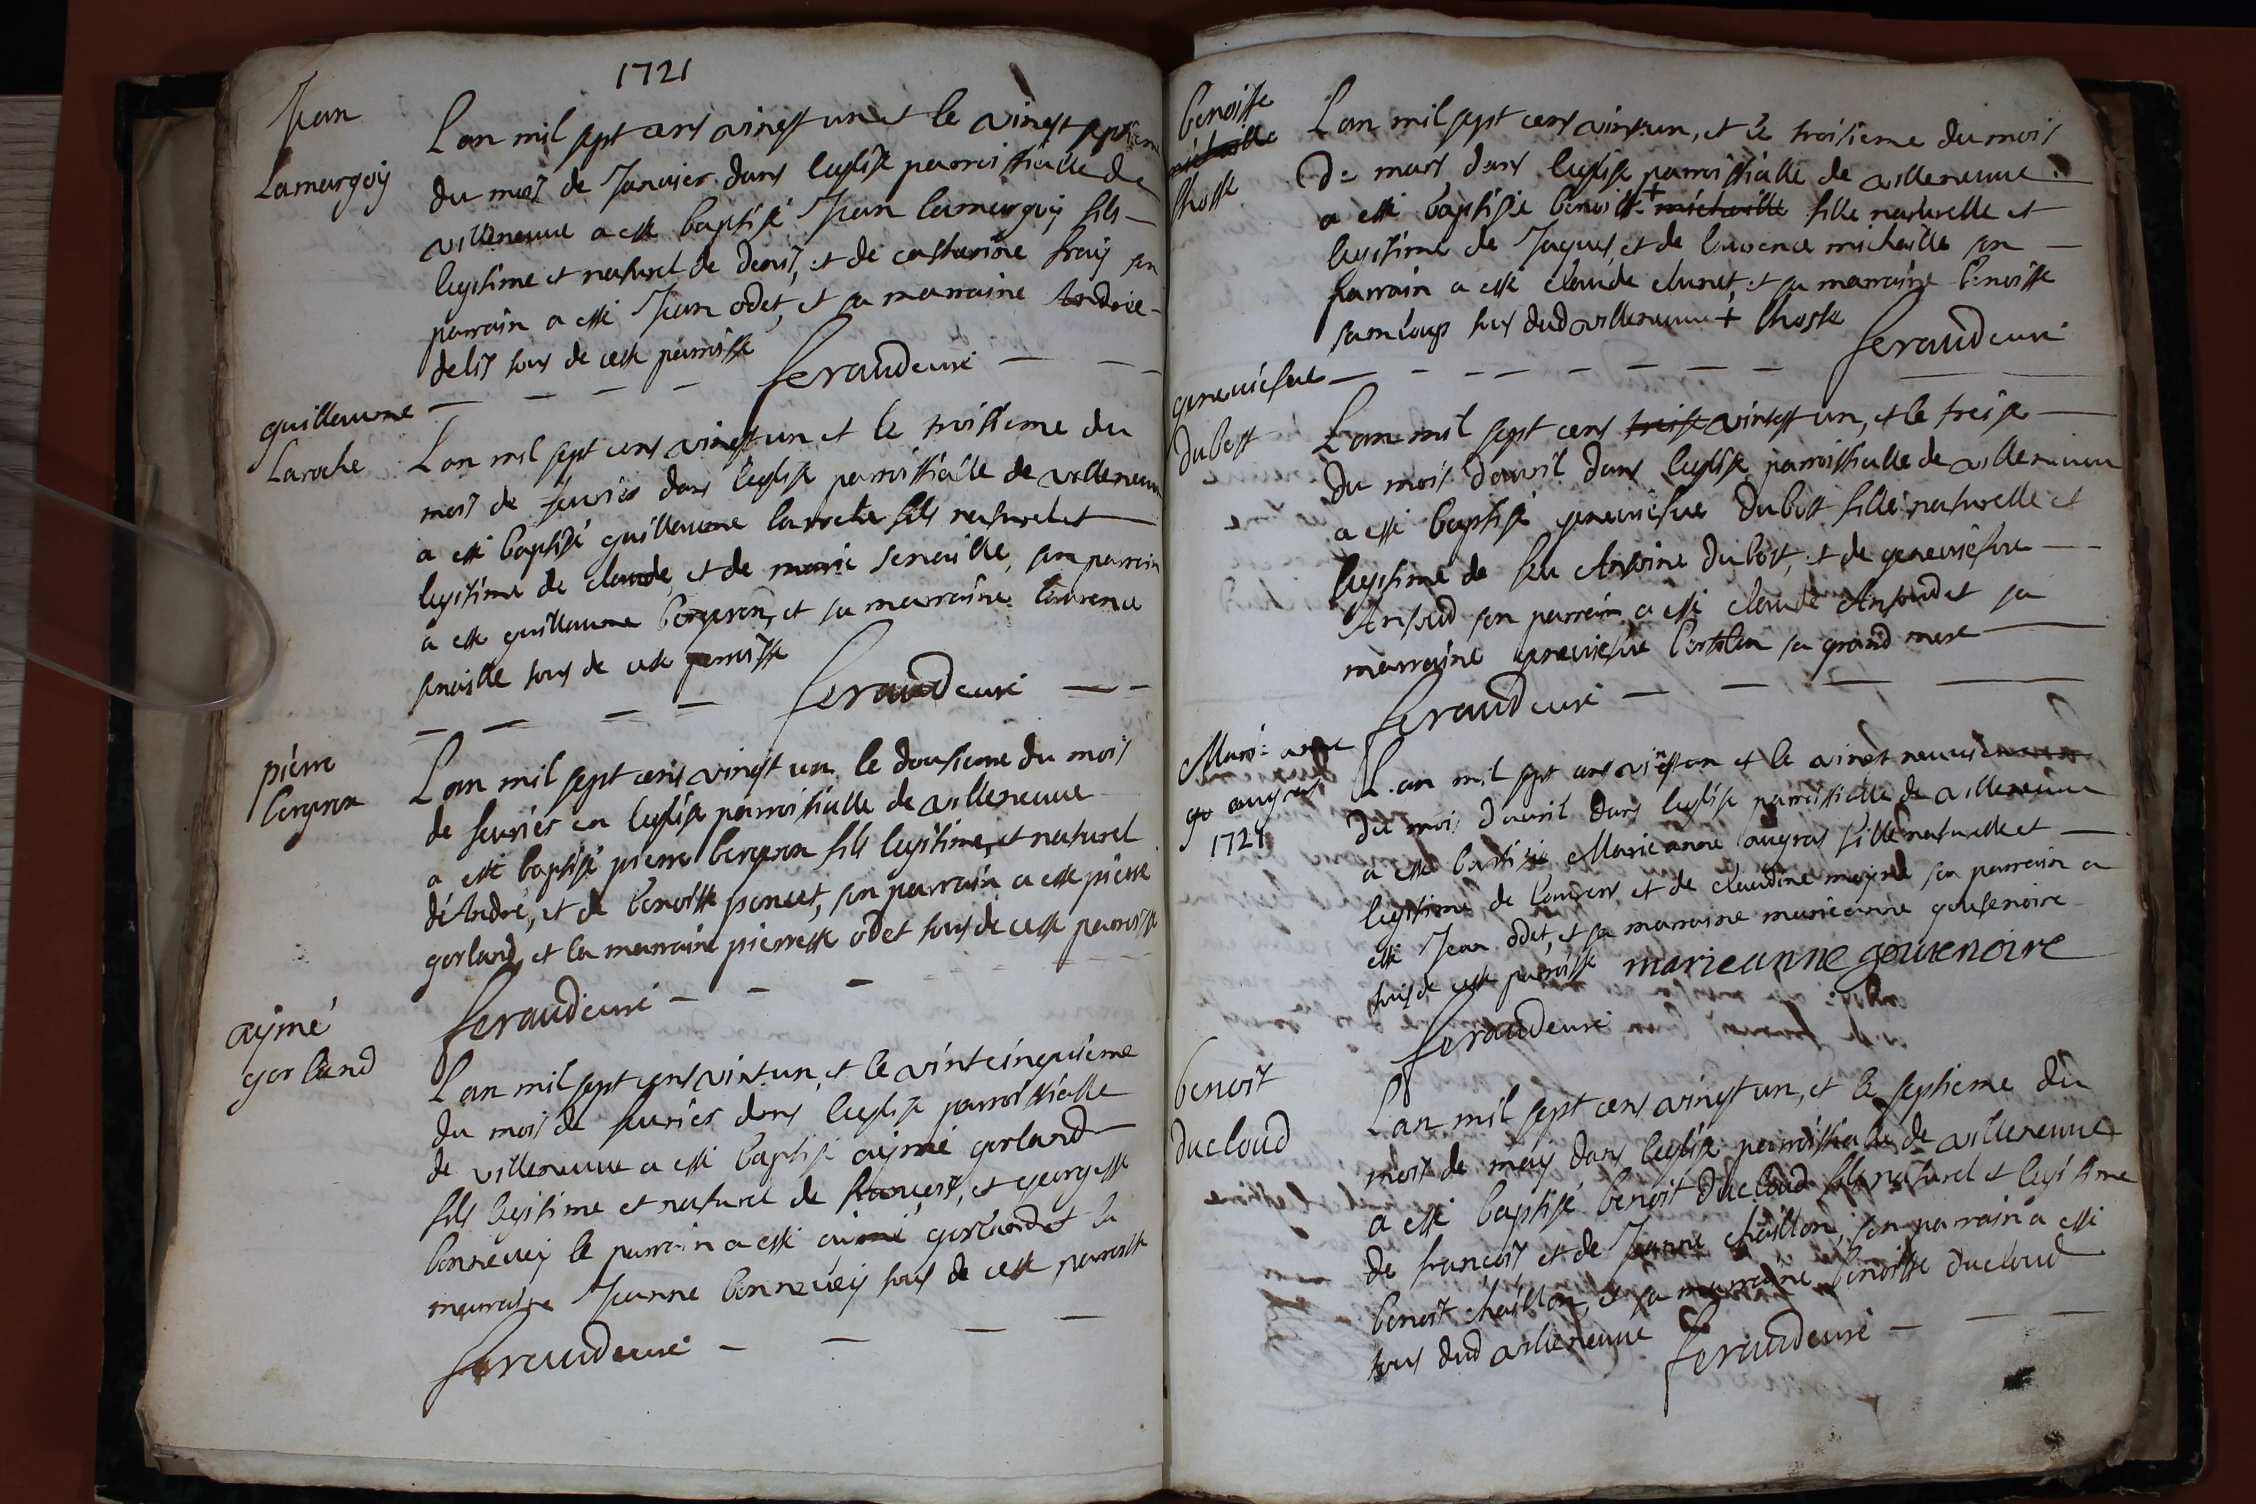 1721
Jean
Lamurgoy
Lan mil sept cens vingt un et le vingt septieme
du mois de Janvier dans leglise parroissialle de
villeneuve a esté baptisé Jean lamurgoy fils
legitime et naturel de denis, et de catherine fray son
parrain a esté Jean odet, et sa marraine Andrée
delis tous de cette parroisse
feraud curé
guillaume
Laroche
Lan mil sept cens vingt un et le troisieme du
mois de feuvrier dans leglise parroissialle de villeneuve
a esté baptisé guillaume laroche fils naturel et
legitime de claude, et de marie senaille, son parrain
a esté guillaume bergeron, et sa marraine laurence
senaille tous de cette parroisse
feraud curé
pierre
bergeron
Lan mil sept cens vingt un le dousieme du mois
de feuvrier en leglise parroissialle de villeneuve
a esté baptisé pierre bergeron fils legitime, et naturel
de André, et de benoiste poncet, son parrain a esté pierre
gorland, et la marraine pierrette odet tous de cette parroisse
feraud curé
aymé
gorland
Lan mil sept cens vint un, et le vint cinquieme
du mois de feuvrier dans leglise parroissialle
de villeneuve a esté baptisé aymé gorland
fils legitime et naturel de françois, et georgette
bonnevey le parrain a esté aimé gorland et la
marraine Jeanne bonnevey tous de cette parroisse
feraud curé
benoiste
michaille
lhoste
Lan mil sept cens vint un, et le troisieme du mois
de mars dans leglise parroissialle de villeneuve
a esté baptisée benoiste + michaille fille naturelle et
legitime de Jaques, et de laurence michaille son
parrain a esté claude clunet, et sa marraine benoiste
tous dud villeneuve + lhoste
feraud curé
geneviefve
dubost
Lan mil sept cens treise vintest un, et le treise
du mois davril dans leglise parroissialle de villeneuve
a esté baptisé geneviefve dubost fille naturelle et
legitime de feu Antoine dubost, et de geneviefve
son parrain a esté claude et sa
marraine genevieve sa grand mere
feraud curé
Marie anne
augras
1721
Lan mil sept cens vingt un et le vingt neuvieme
du mois davril dans leglise parroissialle de villeneuve
a esté batisée Marieanne augras fille naturelle et
legitime de laurens, et de claudine son parrain a
esté Jean odet, et sa marraine marieanne goutenoire
tous de cette parroisse marieanne goutenoire
feraud curé
benoit
ducloud
Lan mil sept cens vingt un, et le septieme du
mois de may dans leglise parroissialle de villeneuve
a esté baptisé benoit ducloud fils naturel et legitime
de françois et de Jeanne chaillon, son parrain a esté
benoit chaillon, et sa marraine benoiste ducloud
tous dud villeneuve feraud curé